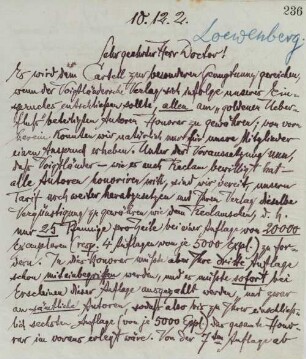 236
10.12.2.
Loewenberg.
Sehr geehrter Herr Doctor!
Es wird dem Cartell zur besonderen Genugthuung gereichen,
wenn der Voigtländersche Verlag sich zufolge unseres Ein-
spruches entschliessen sollte, allen am „goldenen Ueber-
fluss" beteiligten Autoren Honorar zu gewähren; von vorn-
herein konnten wir natürlich nur für unsre Mitglieder
einen Anspruch erheben. Unter der Voraussetzung nun,
dass Voigtländer – wie es auch Reclam bewilligt hat –
alle Autoren honoriren will, sind wir bereit unsern
Tarif noch weiter herabzusetzen und Ihrem Verlag dieselbe
Vergünstigung zu gewähren wie dem Reclamschen, d. h.
nur 25 Pfennige pro Zeile bei einer Auflage von 20000
Exemplaren (resp. 4 Auflagen von je 5000 Expl.) zu for-
dern. In dies Honorar müsste aber Ihre dritte Auflage
schon miteinbegriffen werden, und es müsste sofort bei
Erscheinen dieser Auflage ausgezahlt werden, und zwar
an sämtliche Autoren, sodass also bis zu Ihrer einschliess-
lich sechsten Auflage (von je 5000 Expl.) das gesamte Hono-
rar im voraus erlegt wäre. Von der 7ten Auflage ab